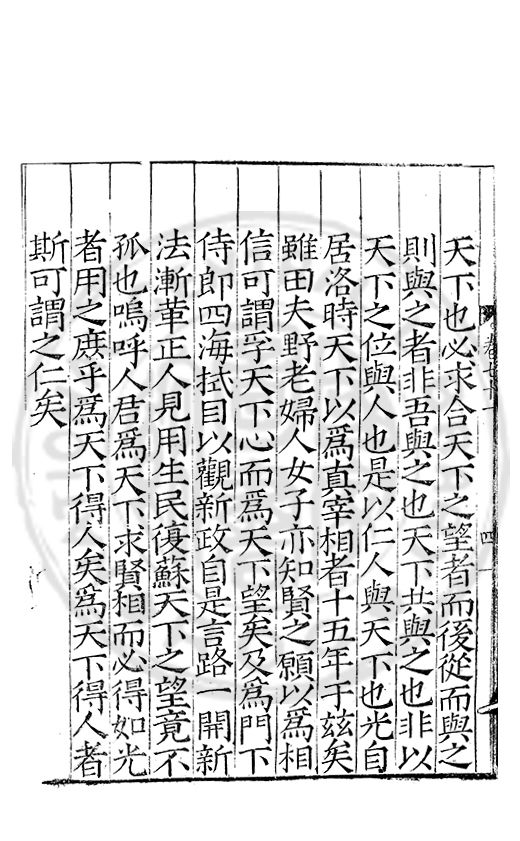 天下也必求合天下之望者而後從而與之
則與之者非吾與之也天下共與之也非以
天下之位與人也是以仁人與天下也光自
居洛時天下以爲真宰相者十五年于兹矣
雖田夫野老婦人女子亦知賢之願以爲相
信可謂孚天下心而爲天下望矣及爲門下
侍郎四海拭目以觀新政自是言路一開新
法漸革正人見用生民復蘇天下之望竟不
孤也嗚呼人君爲天下求賢相而必得如光
者用之庶乎爲天下得人矣爲天下得人者
斯可謂之仁矣
四